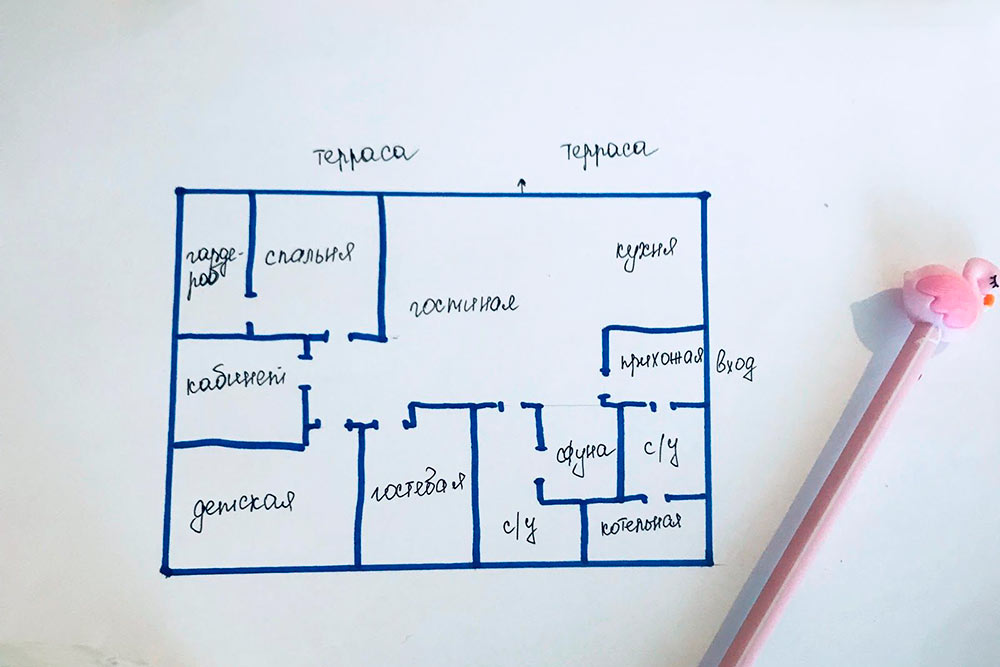 терраса
терраса
гарде-
роб
спальня
кухня
гостиная
кабинет
прихожая
вход
детская
гостевая
сауна
с/у
с/у
котельная